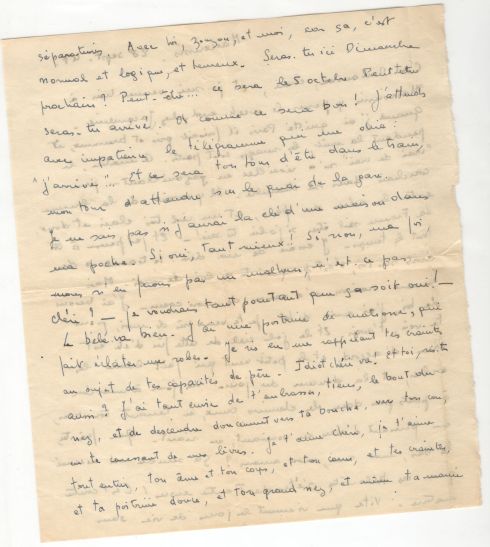 séparations. Avec toi, Zouzou, et moi, ça, c'est
normal et logique, et heureux. Seras-tu ici Dimanche
prochain? Peut-être... ce sera le 5 octobre. Peut-être
seras-tu arrivé! Oh comme ce sera bon! J'attends
avec impatience le télégramme qui me dira:
"j'arrive"... Et ce sera ton tour d'être dans le train,
mon tour d'attendre sur le quai de la gare.
Je ne sais pas si j'aurai la clé d'une maison dans
ma poche. Si oui, tant mieux! Si non, ma foi,
nous n'en ferons pas un malheur, n'est-ce pas
chéri? — Je voudrais tant pourtant que ça soit oui! —
Le bébé va bien. J'ai une poitrine de matrone, qui
fait éclater mes robes. Je ris en me rappelant tes craintes
au sujet de tes capacités de père. Idiot chéri va! et toi,
aussi? J'ai tant envie de t'embrasser, tiens, le bout du
nez, et de descendre doucement vers ta bouche, vers ton cou,
en te caressant de mes lèvres. Je t'aime chéri, je t'aime
tout entier, ton âme et ton corps, et ton cœur, et tes craintes,
et ta poitrine douce, et ton grand nez, et même ta manie